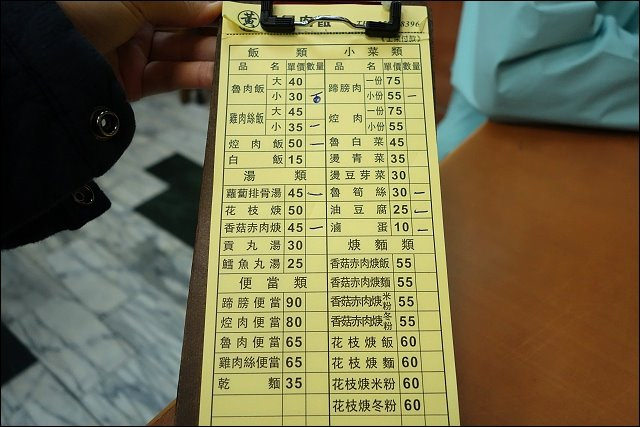 黃
8396
(上菜付款)
飯類 小菜類
品名 單價 數量 品名 單價 數量
魯肉飯 大 40 蹄膀肉 一份 75
小 30 一 小份 55 一
雞肉絲飯 大 45 焢肉 一份 75
小 35 一 小份 55
焢肉飯 50 一 魯白菜 45
白飯 15 燙青菜 35
湯類 燙豆芽菜 30
蘿蔔排骨湯 45 一 魯筍絲 30 一
花枝焿 50 油豆腐 25 一
香菇赤肉焿 45 一 滷蛋 10 一
貢丸湯 30 焿麵類
鱈魚丸湯 25 香菇赤肉焿飯 55
便當類 香菇赤肉焿麵 55
蹄膀便當 90 香菇赤肉焿米粉 55
焢肉便當 80 香菇赤肉焿冬粉 55
魯肉便當 65 花枝焿飯 60
雞肉絲便當 65 花枝焿麵 60
乾麵 35 花枝焿米粉 60
花枝焿冬粉 60